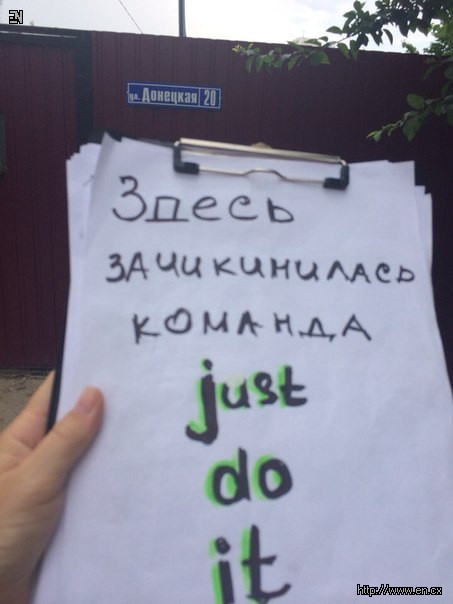 EN
ул. Донецкая 20
Здесь
зачикинилась
команда
just
do
it
http://www.en.cx